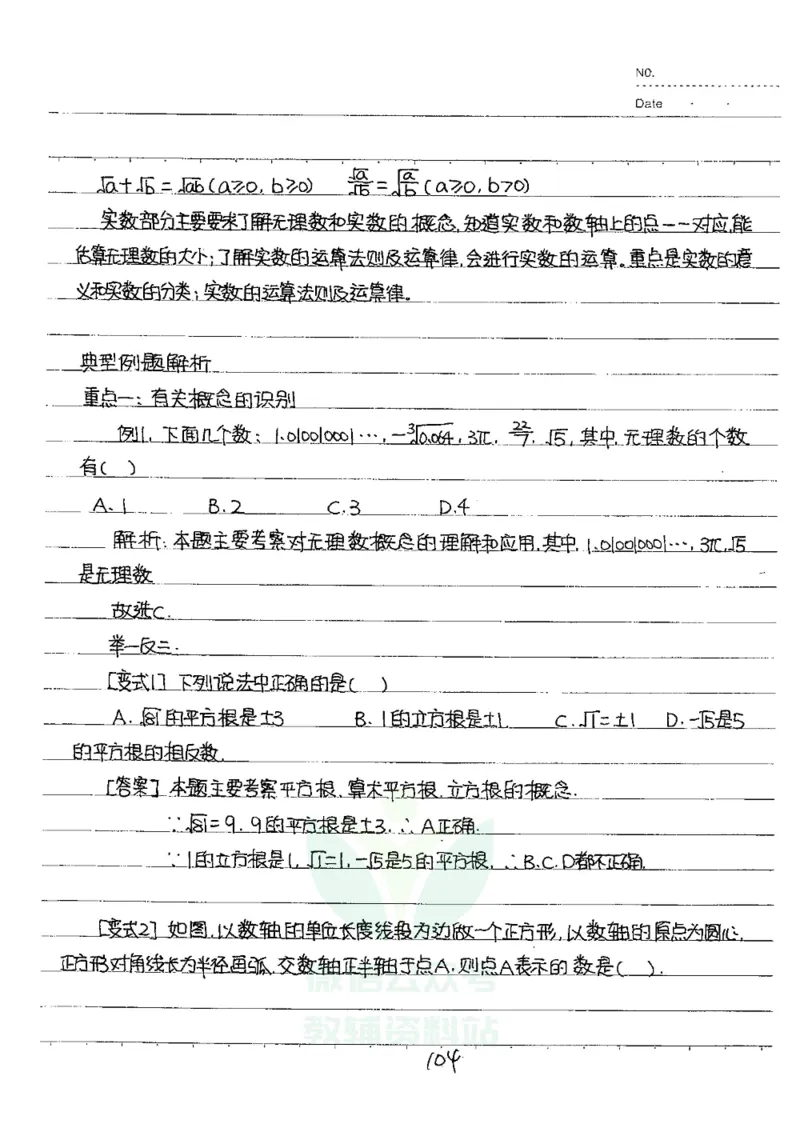 NO.
Date
√a+√b=√ab(a≥0,b≥0) √a/√b=√(a/b)(a≥0,b>0)
实数部分主要要求了解无理数和实数的概念,知道实数和数轴上的点一一对应,能
估算无理数的大小;了解实数的运算法则及运算律,会进行实数的运算。重点是实数的意
义和实数的分类;实数的运算法则及运算律。
典型例题解析
重点一:有关概念的识别
例1.下面几个数:1.010010001…,-³√0.064,3π,22/7,√5,其中,无理数的个数
有( )
A.1 B.2 C.3 D.4
解析:本题主要考察对无理数概念的理解和应用,其中,1.010010001…,3π,√5
是无理数
故选C.
举一反三.
[变式1] 下列说法中正确的是( )
A.√81的平方根是±3 B.1的立方根是±1 C.√1=±1 D.-√5是5
的平方根的相反数.
[答案] 本题主要考察平方根、算术平方根、立方根的概念.
∵√81=9.9的平方根是±3.∴A正确.
∵1的立方根是1,√1=1,-√5是5的平方根,∴B.C.D都不正确.
[变式2] 如图,以数轴的单位长度线段为边做一个正方形,以数轴的原点为圆心,
正方形对角线长为半径画弧,交数轴正半轴于点A,则点A表示的数是( ).
微信公众号
教辅资料站
104